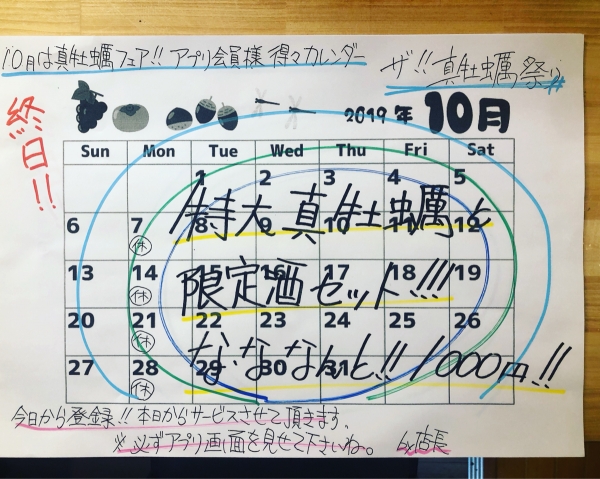 10月は真牡蠣フェア!! アプリ会員様 得々カレンダー
ザ!! 真牡蠣祭り
終日!!
2019年 10月
Sun Mon Tue Wed Thu Fri Sat
1 2 3 4 5
特大真牡蠣と
6 7 8 9 10 11 12
休
限定酒セット!!!
13 14 15 16 17 18 19
休
20 21 22 23 24 25 26
休
な、ななんと!! 1000円!!
27 28 29 30 31
休
今日から登録!! 本日からサービスさせて頂きます。
※必ずアプリ画面を見せて下さいね。 by店長